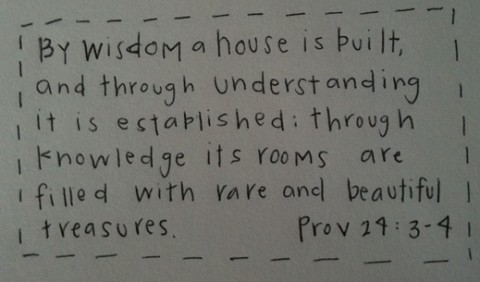 By wisdom a house is built,
and through understanding
it is established; through
knowledge its rooms are
filled with rare and beautiful
treasures. Prov 24:3-4